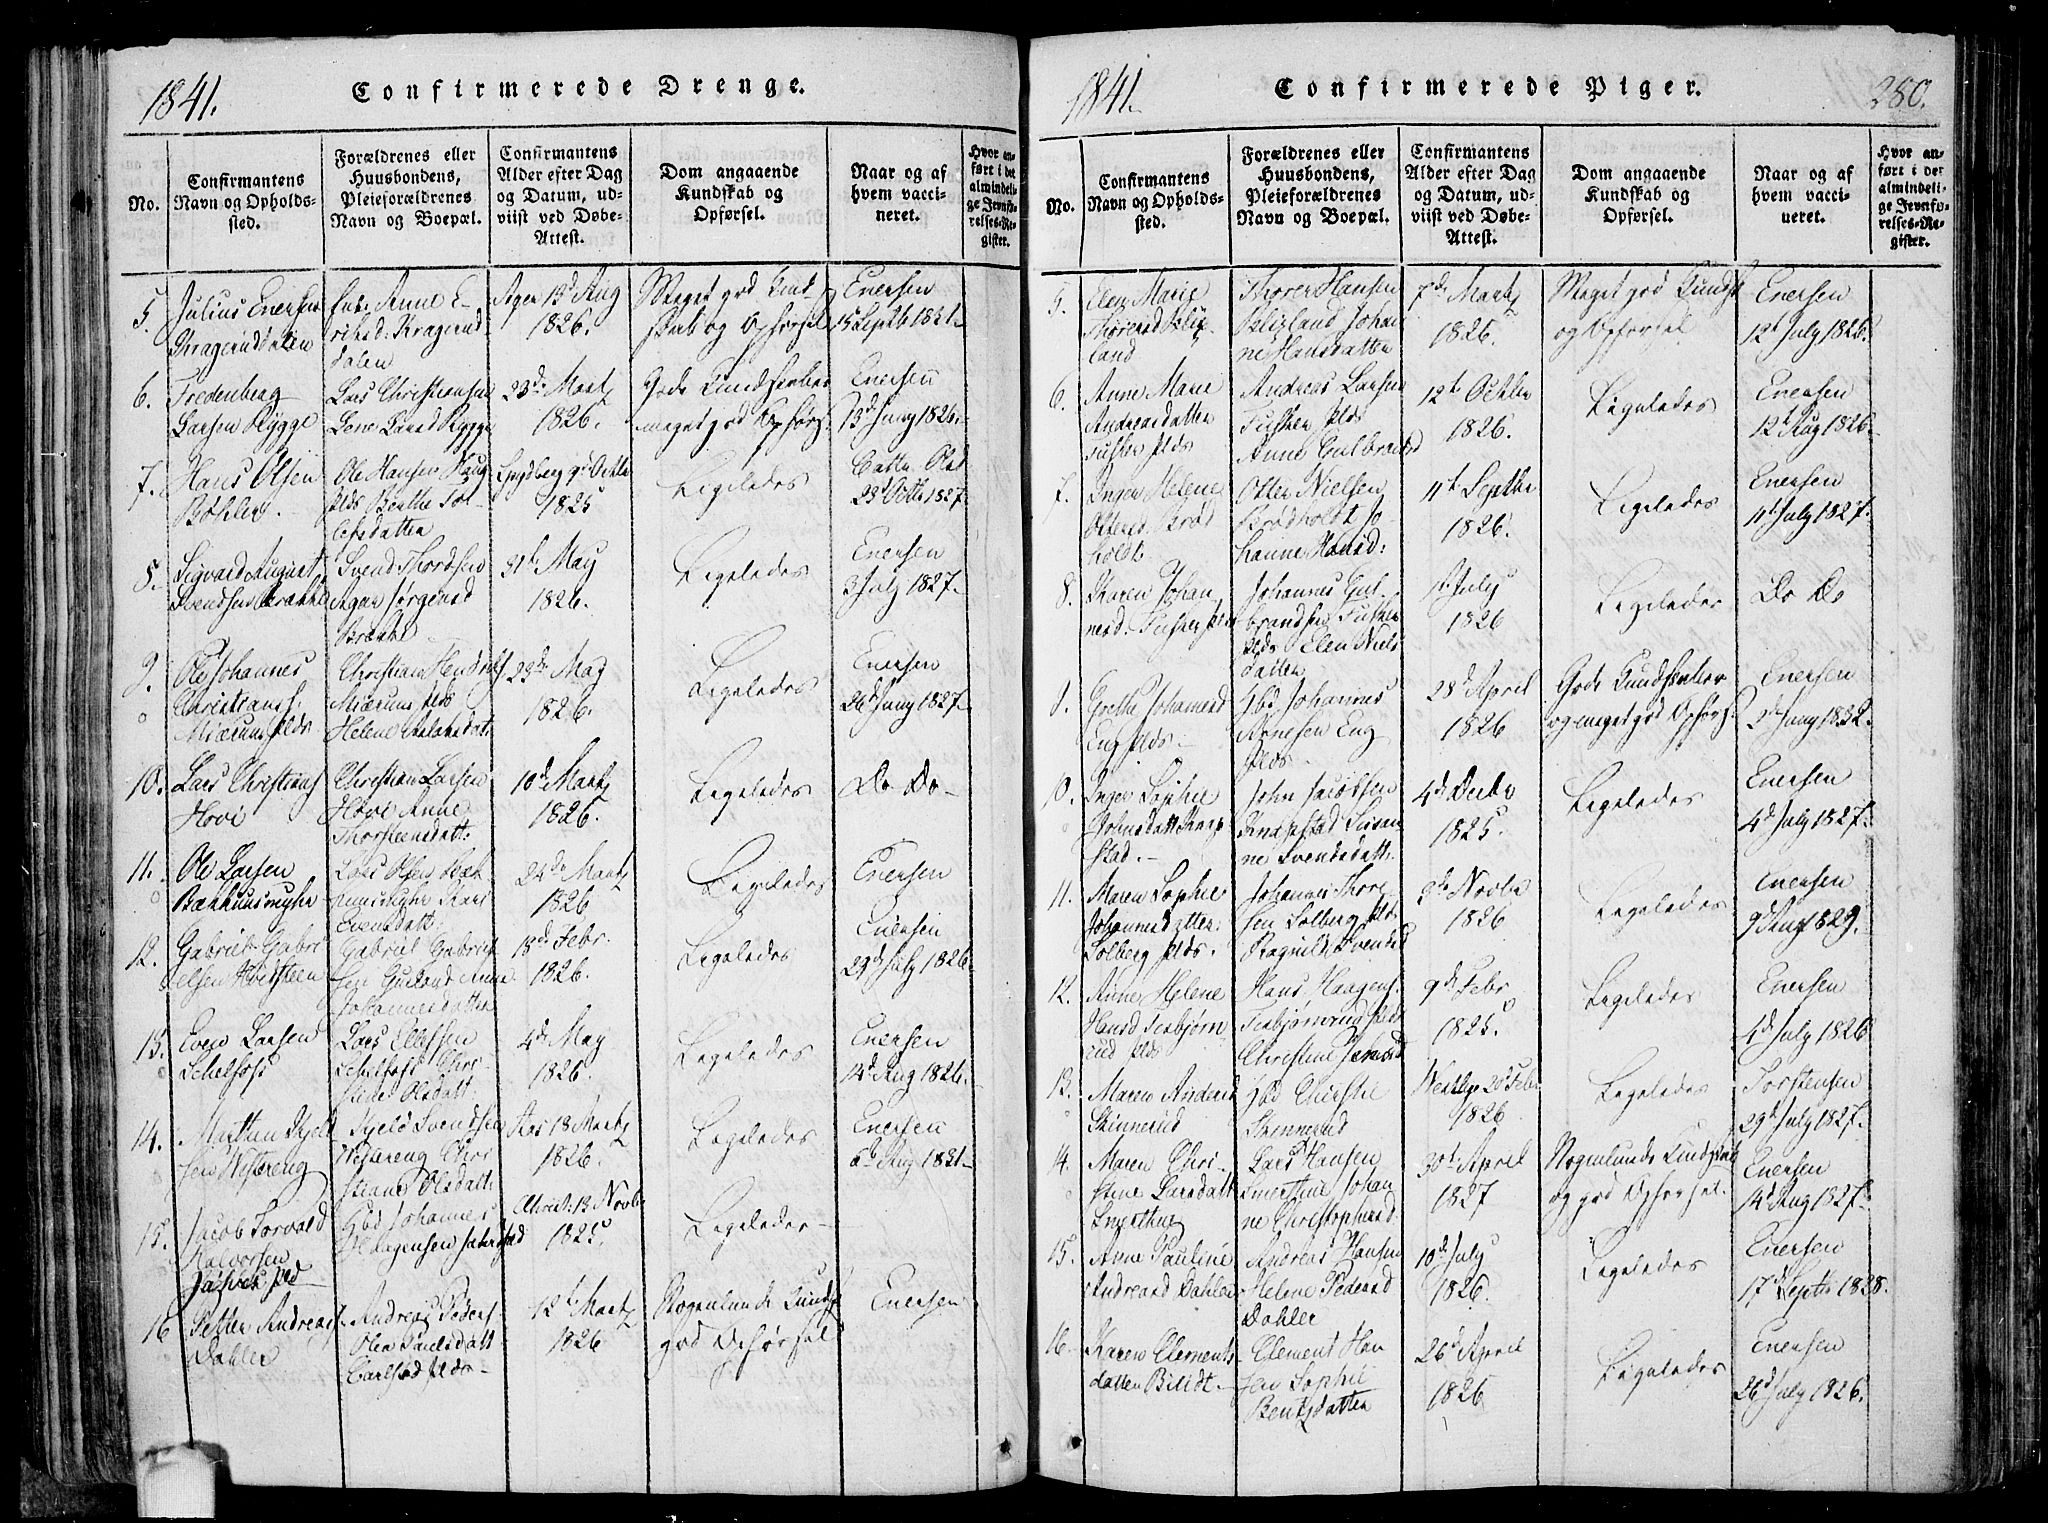 1841.
Confirmerede Drenge.
No.
Confirmantens
Navn og Opholds-
sted.
Forældrenes eller
Huusbondens,
Pleieforældrenes
Navn og Boepæl.
Confirmantens
Alder efter Dag
og Datum, ud-
viist ved Døbe-
Attest.
Dom angaaende
Kundskab og
Opførsel.
Naar og af
hvem vacci-
neret.
Hvor an-
ført i det
almindeli-
ge Jevnfø-
relses-Re-
gister.
5.
Julius Enersen
Krageruddalen
Anne E-
Kragerud
dalen
Ager 13d Aug
1826.
Meget god Kund-
skab og Opførsel
Enersen
15 Septb 1831
6.
Fredenberg
Larsen Rygge
Lars Christiansen
Rygge
23de Martz
1826.
Gode Kundskaber
meget god Opførs:
Enersen
13d Juny 1826.
7.
Hans Olsen
Bøhler
Ole Hansen Haug
Plds Berthe Tol-
lefsdatter
9d Octbr
1825
Ligeledes
23d Octb 1827
8.
Sigvard August
Svendsen Brække
Svend Thordsen
Agar Jørgensd
Brække
31te May
1826.
Ligeledes
Enersen
3 July 1827.
9.
Ole Johannes
Christians.
Mærum Plds
Christian Hendrichs
Mærum Plds
Helene
23de May
1826.
Ligeledes
Enersen
26d Juny 1827
10.
Lars Christians
Hovi
Christian Larsen
Hovi Anne
Thorsteensdatt:
10de Martz
1826.
Ligeledes
Do Do
11.
Ole Larsen
Bækhuusmyhr
Lars Olsen Bæk-
huusmyhr Kari
Evensdatt:
24de Martz
1826
Ligeledes
Enersen
12.
Gabriel Gabri
elsen Hvidsteen
Gabriel Gabriel
sen Anne
Johannesdatter
18de Febr.
1826.
Ligeledes
Enersen
29d July 1826
13.
Even Larsen
Schelfoss
Lars Ellefsen
Schelfoss Chri-
stine Olsdatt:
4de May
1826.
Ligeledes
Enersen
14d Aug 1826.
14.
Marthin Kjeld
sen Westereng
Kjeld Svendsen
Westereng Chri
stiane Olsdatt:
Aas 18 Martz
1826.
Ligeledes
Enersen
Aug 1831
15.
Jacob Torvald
Halvorsen
Pld
Gbd Johannes
Haagensen
Christ: 13 Novbr
1825.
Ligeledes
16
Petter Andreas
Dahler
Andreas Peders
Olea Paulsdatt
Carlsrud Plds
12te Martz
1826
Nogenlunde Kundsk
god Opførsel
Enersen
1841.
Confirmerede Piger.
280.
No.
Confirmantens
Navn og Opholds-
sted.
Forældrenes eller
Huusbondens,
Pleieforældrenes
Navn og Boepæl.
Confirmantens
Alder efter Dag
og Datum, ud-
viist ved Døbe-
Attest.
Dom angaaende
Kundskab og
Opførsel.
Naar og af
hvem vacci-
neret.
Hvor an-
ført i det
almindeli-
ge Jevnfø-
relses-Re-
gister.
5.
Elen Marie
land
Thorer Hansen
Johan
ne Hansdatter
7de Martz
1826.
Meget god Kundsk
og Opførsel
Enersen
12t July 1826.
6.
Anne Marie
Andreasdatter
Fusker Plds
Andreas Larsen
Fusker Plds
Anne Gulbrandsd
12t Octbr
1826.
Ligeledes
Enersen
12t Aug 1826
7.
Inger Helene
Ottersd Brød
holdt
Otter Nielsen
Brødholdt Jo-
hanne Hansd:
11te Septbr
1826.
Ligeledes
Enersen
11t July 1827.
8.
Karen Johan
nesd. Fusker Pld
Johannes Gul
brandsen Fusker
Plds Elen Niels
datter
1st July
1826
Ligeledes
Do Do
9.
Grethe Johannesd
Eng Plds
Gbd Johannes
Arnesen Eng
Plds
28d April
1826
Gode Kundskaber
og meget god Opførs
Enersen
2d Juny 1832.
10.
Inger Sophie
Johnsdatt Knap
stad.
John Jacobsen
Knapstad Susan
ne Svendsdatt:
4de Decbr
1825.
Ligeledes
Enersen
4d July 1827.
11.
Maren Sophie
Johannesdatter
Solberg Plds.
Johannes Thore
sen Solberg Plds
Ragnild Svendsd
3de Novbr
1826
Ligeledes
Enersen
9d Aug 1829.
12.
Anne Helene
Hansd Torbjørn
rud Plds
Hans Haagens.
Torbjørnrud Plds
Christine
9de Febr
1825.
Ligeledes
Enersen
4d July 1826
13.
Maren Andersd
Skinnerud
Gbd Christie
Skinnerud
Westby 20d Febr
1826
Ligeledes
Torstensen
29d July 1827.
14.
Maren Chri-
stine Larsdatt
Smerthue
Lars Hansen
Smerthue Johan
ne Christophersd:
30te April
1827
Nogenlunde Kundskab
og god Opførsel.
Enersen
14d Aug 1827.
15.
Anne Pauline
Andreasd Dahler
Andreas Hansen
Helene Pedersd
Dahler
10de July
1826.
Ligeledes
Enersen
17d Septb 1828.
16.
Karen Clements
datter Billdt
Clement Han
sen Sophie
Bentsdatter
26d April
1826
Ligeledes
Enersen
26d July 1826.